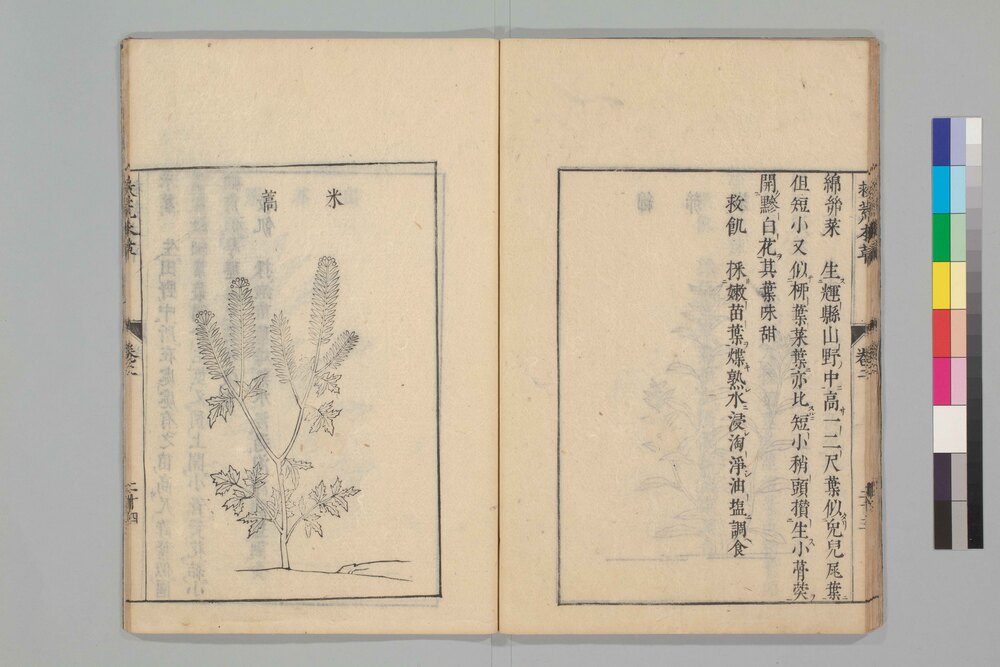 救荒本草
卷二
二十三
綿絲菜　生輝縣山野中高一二尺葉似兎兒尾葉
但短小又似柳葉菜葉亦比短小稍頭攢生小菁葖
開黲白花其葉味甜
救飢　採嫩苗葉煠熟水浸淘淨油塩調食
米
蒿
救荒本草
卷之二
二十四